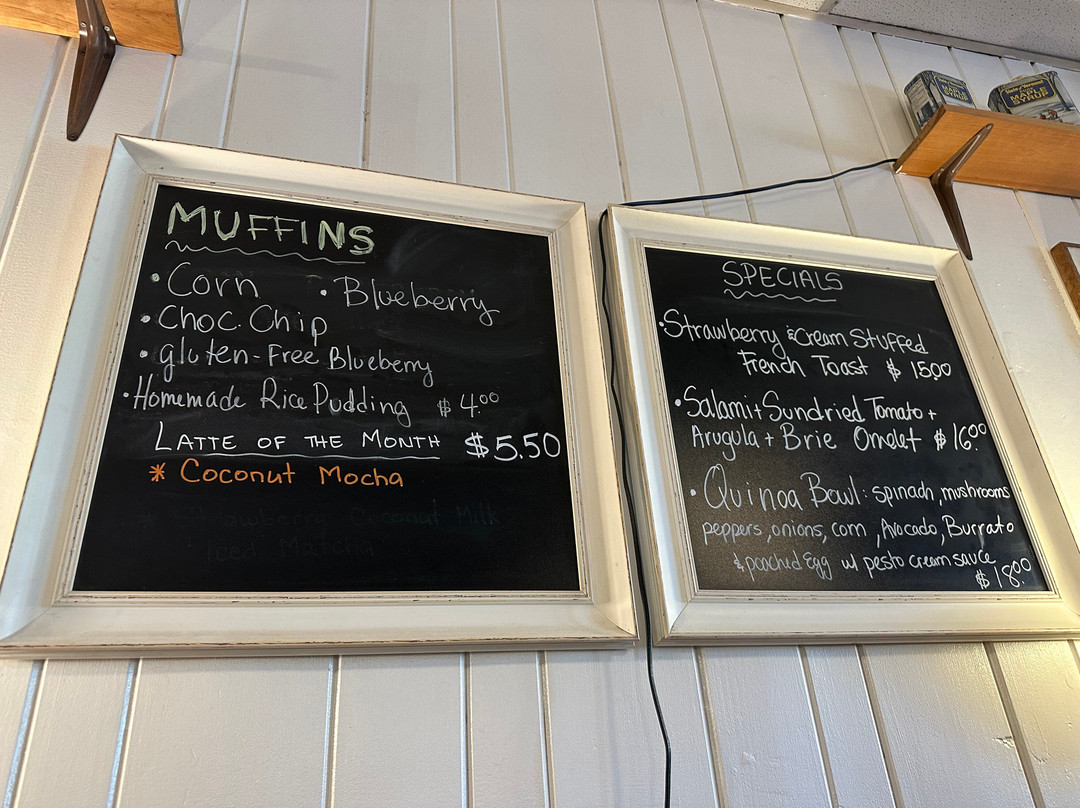 MUFFINS
• Corn • Blueberry
• Choc. Chip
• gluten-Free Blueberry
• Homemade Rice Pudding $4.00
LATTE OF THE MONTH $5.50
* Coconut Mocha
* Strawberry Coconut Milk
Iced Matcha
SPECIALS
• Strawberry & Cream Stuffed
French Toast $15.00
• Salami + Sundried Tomato +
Arugula + Brie Omelet $16.00
• Quinoa Bowl: spinach, mushrooms
peppers, onions, corn, Avocado, Burrato
& poached Egg w/ pesto cream sauce
$18.00
MAPLE
SYRUP
MAPLE
SYRUP